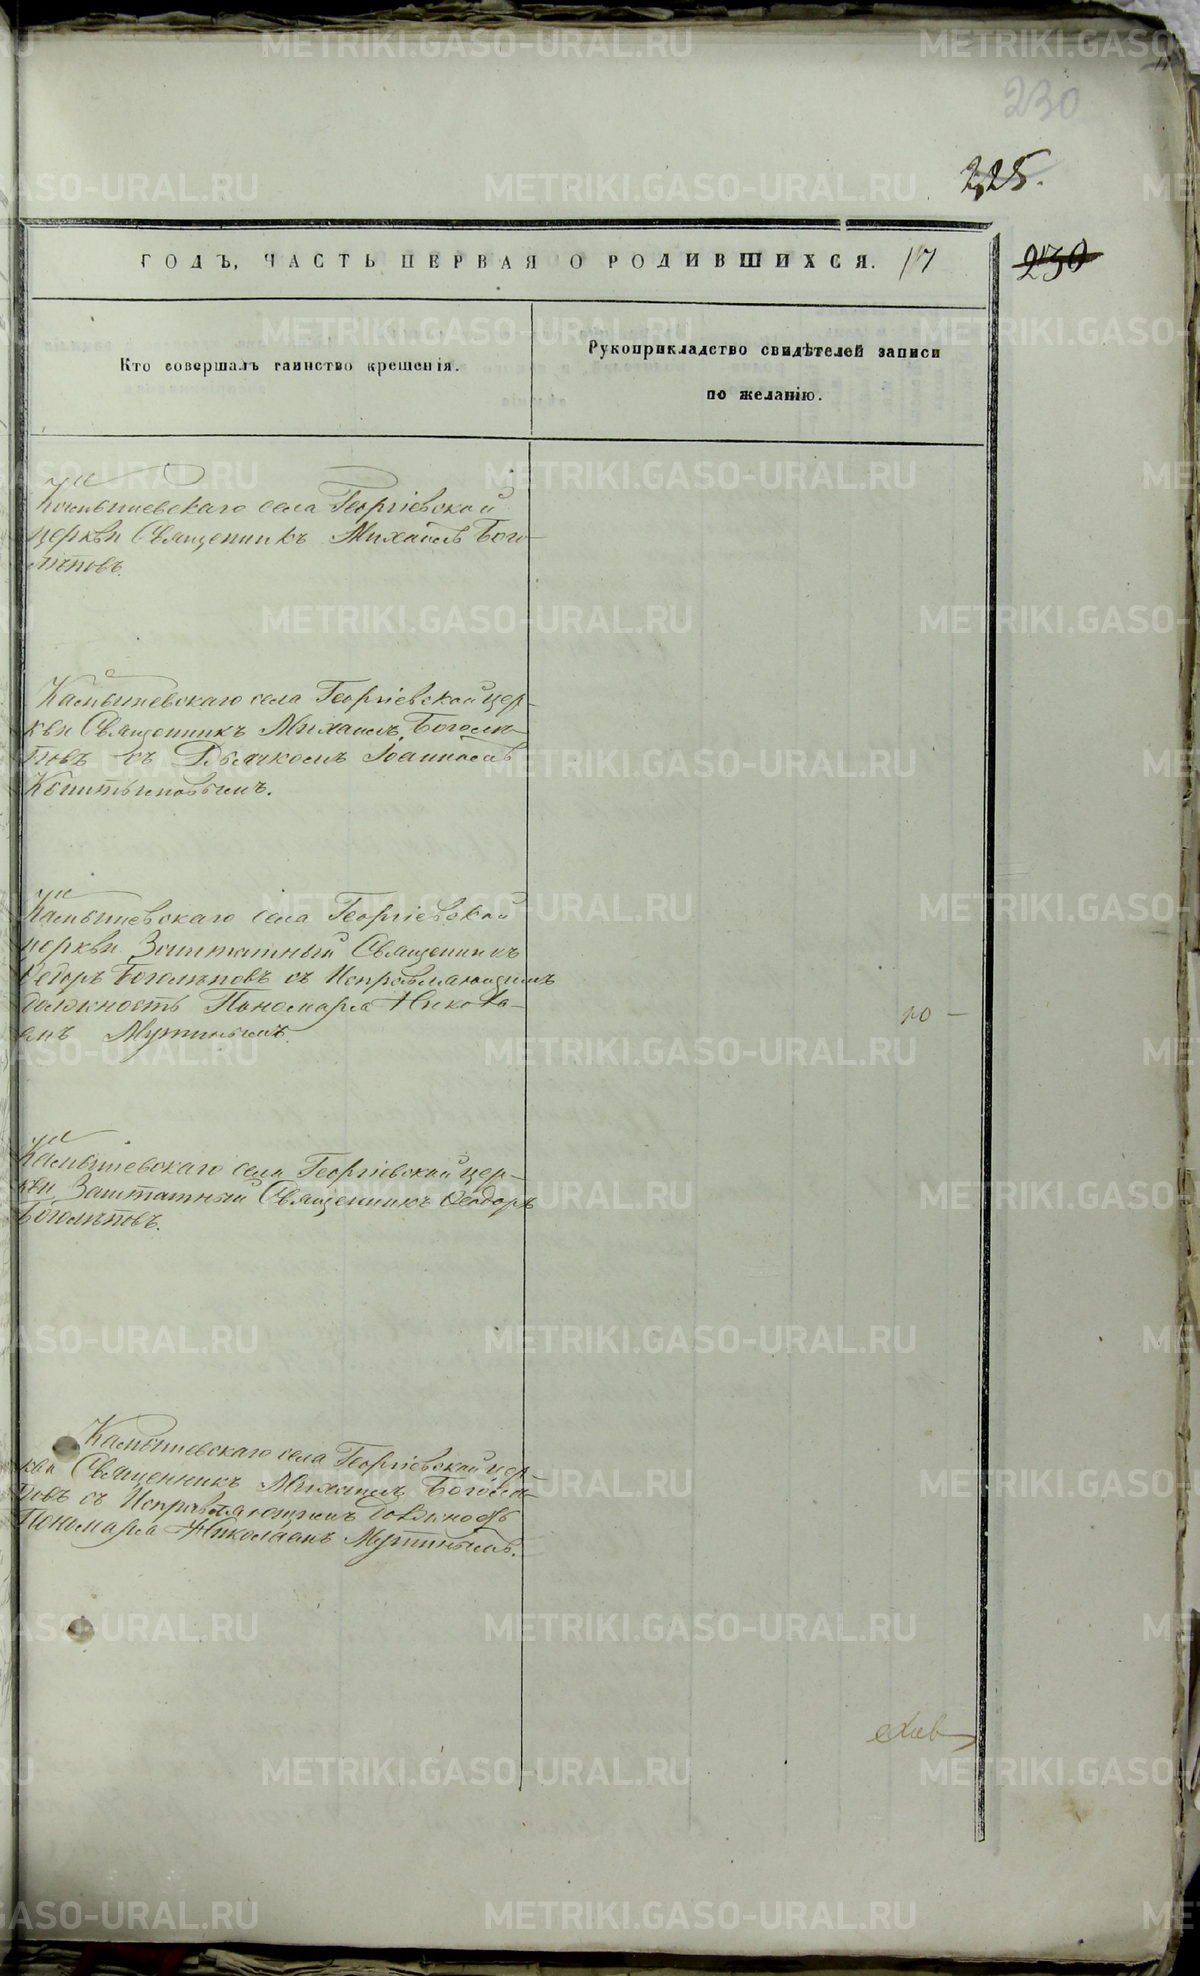 230
225.
ГОДЪ, ЧАСТЬ ПЕРВАЯ О РОДИВШИХСЯ. 17
230
Кто совершалъ таинство крещенія.
Рукоприкладство свидѣтелей записи
по желанію.
Камышевскаго села Георгіевской
церкви Священникъ Михаилъ Бого-
лѣповъ.
Камышевскаго села Георгіевской цер-
кви Священникъ Михаилъ Боголѣ-
повъ съ Дьячкомъ Іоанномъ
Камышевскаго села Георгіевской
церкви Заштатный Священникъ
Ѳедоръ Боголѣповъ съ Исправляющимъ
должность Пономаря Никола-
емъ Мутинымъ.
10 —
Камышевскаго села Георгіевской цер-
кви Заштатный Священникъ Ѳеодоръ
Боголѣповъ.
Камышевскаго села Георгіевской цер-
кви Священникъ Михаилъ Боголѣ-
повъ съ Исправляющимъ должность
Пономаря Николаемъ Мутинымъ.
METRIKI.GASO-URAL.RU